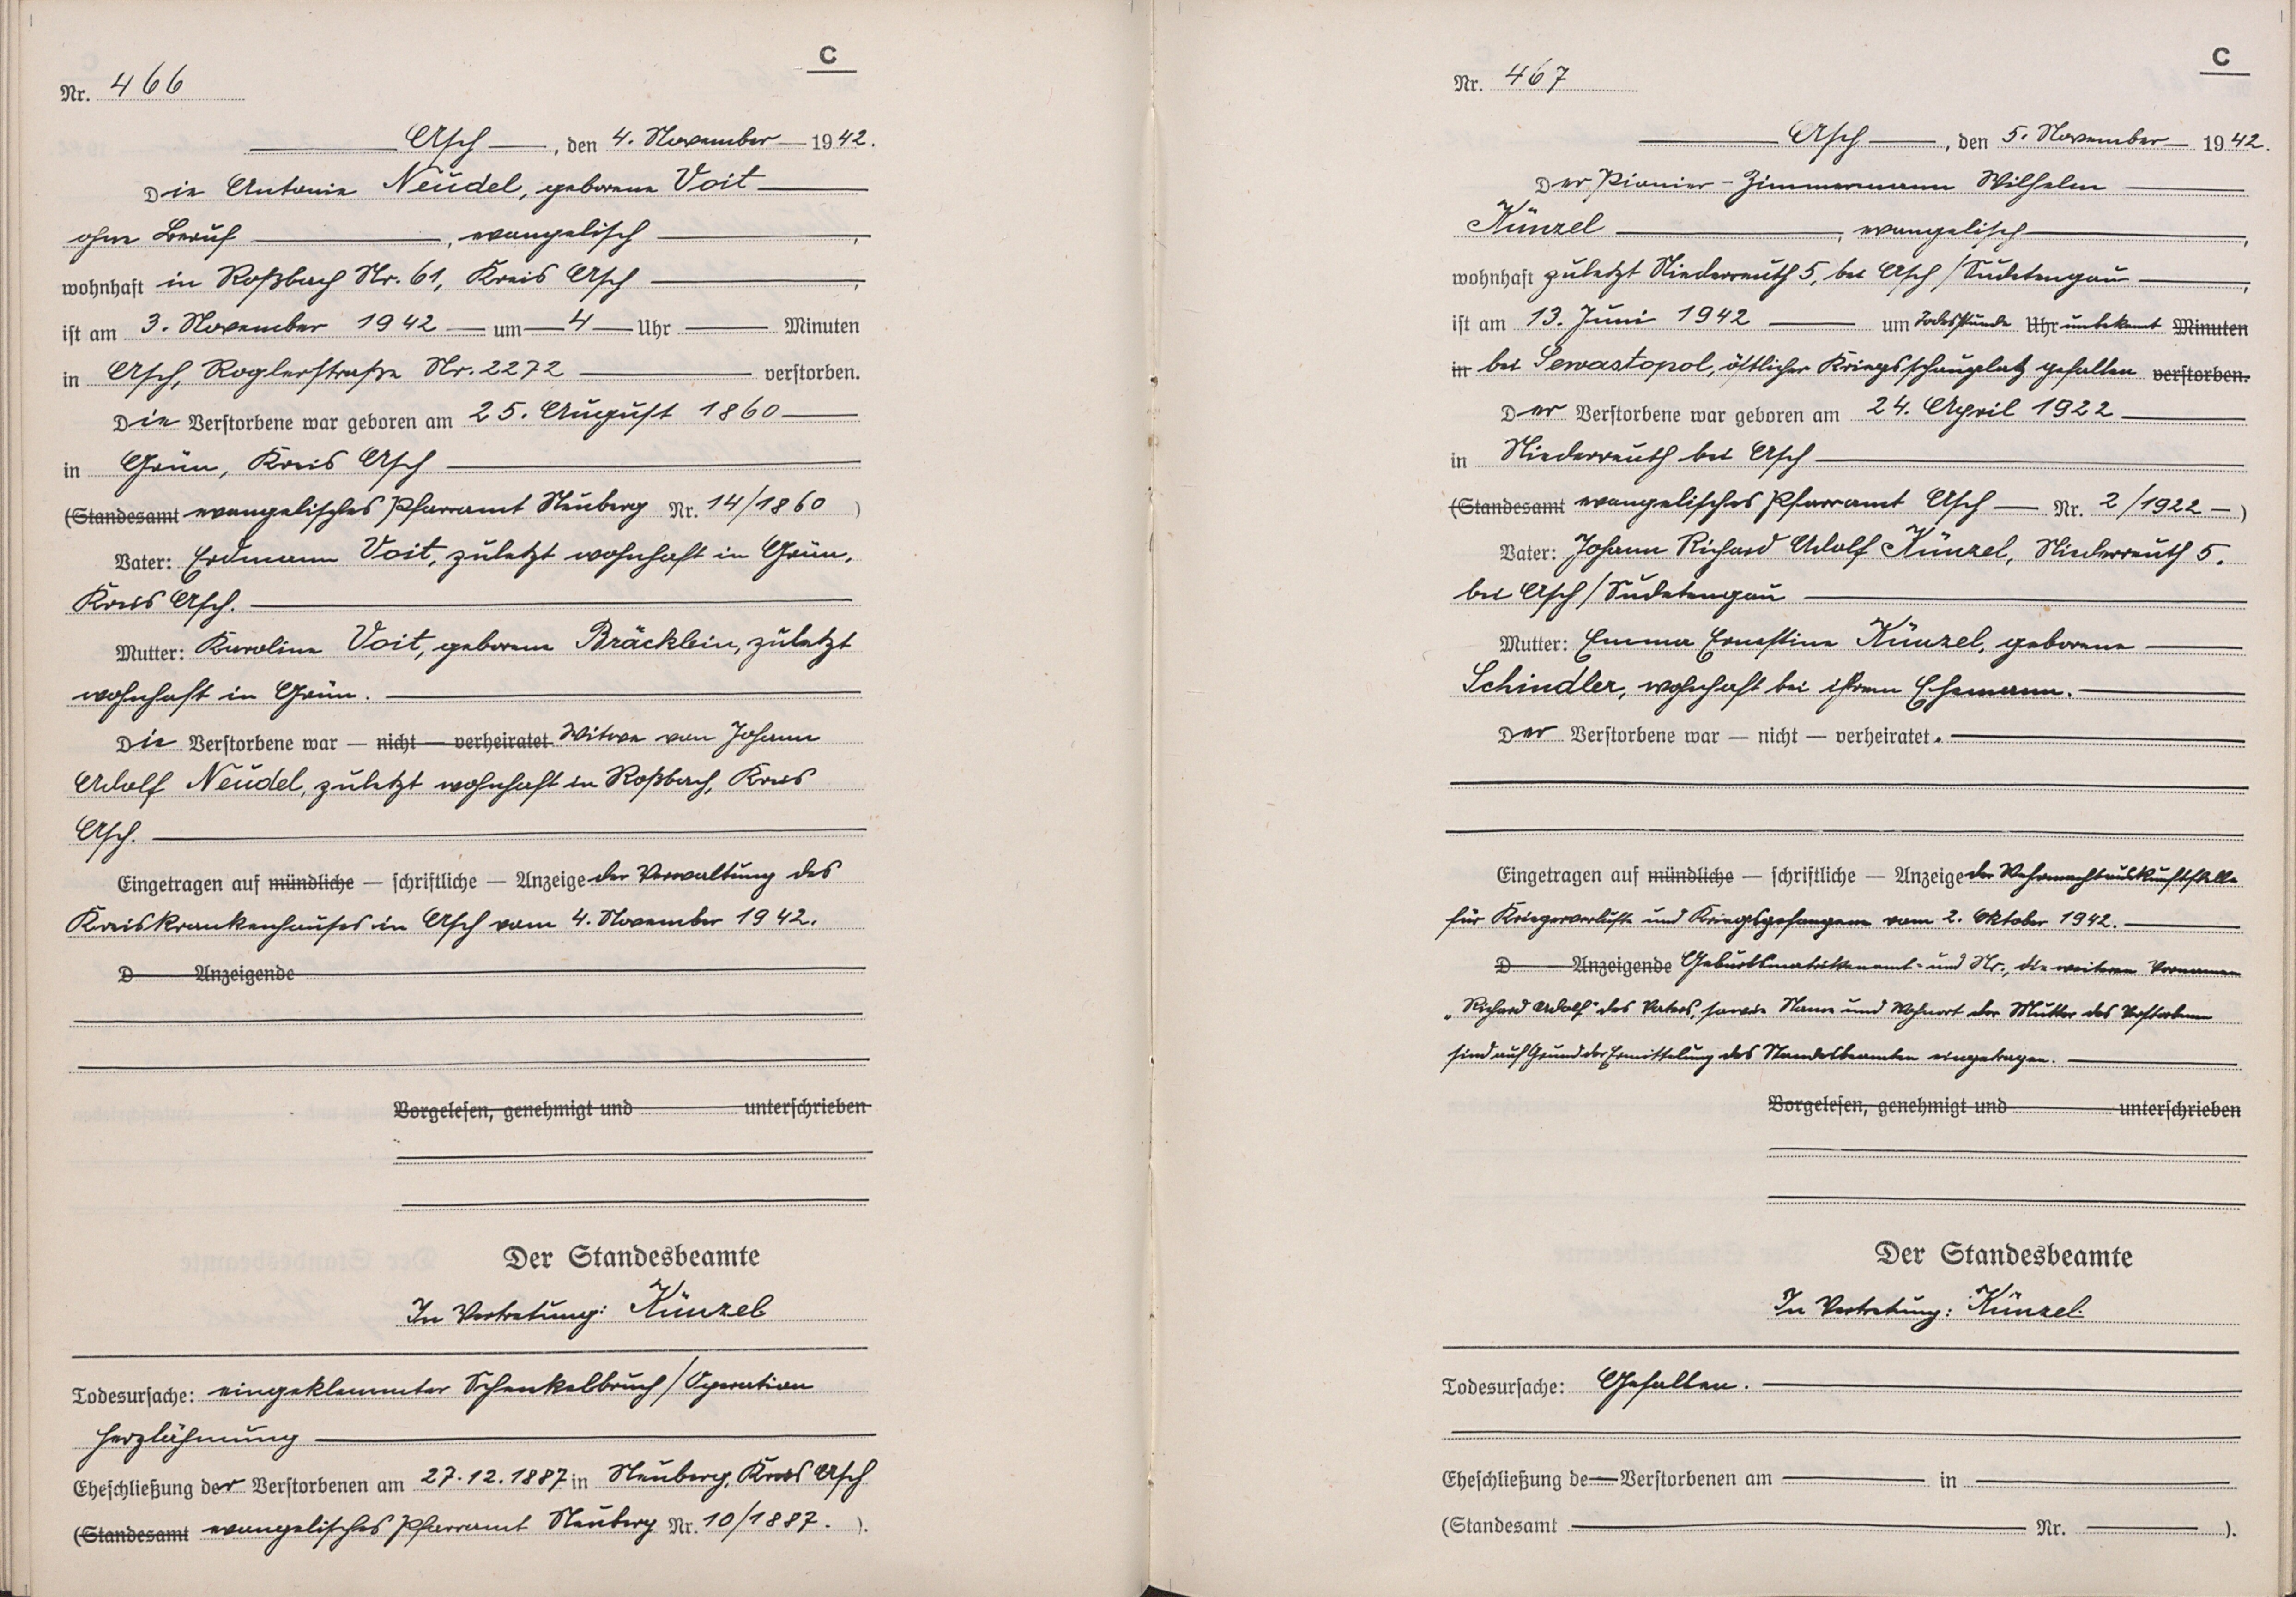 C
Nr. 466
Asch, den 4. November 1942.
Die Antonie Neudel, geborene Voit
ohne Beruf, evangelisch,
wohnhaft in Roßbach Nr. 61, Kreis Asch,
ist am 3. November 1942 um 4 Uhr Minuten
in Asch, Roglerstraße Nr. 2272 verstorben.
Die Verstorbene war geboren am 25. August 1860
in Grün, Kreis Asch
(Standesamt evangelisches Pfarramt Neuberg Nr. 14/1860)
Vater: Erdmann Voit, zuletzt wohnhaft in Grün,
Kreis Asch.
Mutter: Karoline Voit, geborene Bräcklein, zuletzt
wohnhaft in Grün.
Die Verstorbene war — nicht — verheiratet Witwe von Johann
Adolf Neudel, zuletzt wohnhaft in Roßbach, Kreis
Asch.
Eingetragen auf mündliche — schriftliche — Anzeige der Verwaltung des
Kreiskrankenhauses in Asch vom 4. November 1942.
D Anzeigende
Vorgelesen, genehmigt und unterschrieben
Der Standesbeamte
In Vertretung: Künzel
Todesursache: eingeklemmter Schenkelbruch / Operation
Herzlähmung
Eheschließung der Verstorbenen am 27.12.1887 in Neuberg, Kreis Asch
(Standesamt evangelisches Pfarramt Neuberg Nr. 10/1887.).
C
Nr. 467
Asch, den 5. November 1942.
Der Pionier - Zimmermann Wilhelm
Künzel, evangelisch,
wohnhaft zuletzt Niederreuth 5, bei Asch / Sudetengau,
ist am 13. Juni 1942 um Todesstunde Uhr unbekannt Minuten
in bei Sewastopol, östlicher Kriegsschauplatz gefallen verstorben.
Der Verstorbene war geboren am 24. April 1922
in Niederreuth bei Asch
(Standesamt evangelisches Pfarramt Asch — Nr. 2/1922 —)
Vater: Johann Richard Adolf Künzel, Niederreuth 5,
bei Asch / Sudetengau
Mutter: Emma Ernestine Künzel, geborene
Schindler, wohnhaft bei ihrem Ehemann.
Der Verstorbene war — nicht — verheiratet.
Eingetragen auf mündliche — schriftliche — Anzeige der Wehrmachtauskunftstelle
für Kriegerverluste und Kriegsgefangene vom 2. Oktober 1942.
D Anzeigende Geburtsmatrikenamt- und Nr., die weiteren Vornamen
„Richard Adolf“ des Vaters, sowie Name und Wohnort der Mutter des Verstorbenen
sind auf Grund der Ermittelung des Standesbeamten eingetragen.
Vorgelesen, genehmigt und unterschrieben
Der Standesbeamte
In Vertretung: Künzel
Todesursache: Gefallen.
Eheschließung de— Verstorbenen am — in —
(Standesamt — Nr. —).